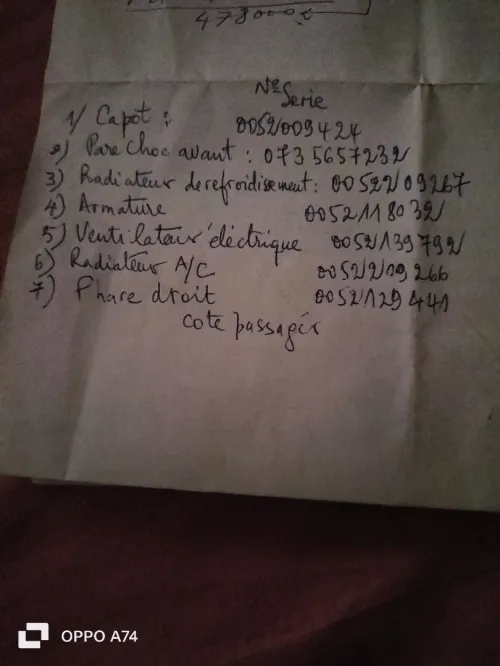 478000
Nº Serie
1/ Capot : 0052/009424
2) Pare Choc avant : 0735657232
3) Radiateur de refroidisement : 00522/09267
4) Armature 0052118032
5) Ventilateur électrique 0052/139792
6) Radiateur A/C 0052/2/09266
7) Phare droit 0052129441
cote passager
OPPO A74